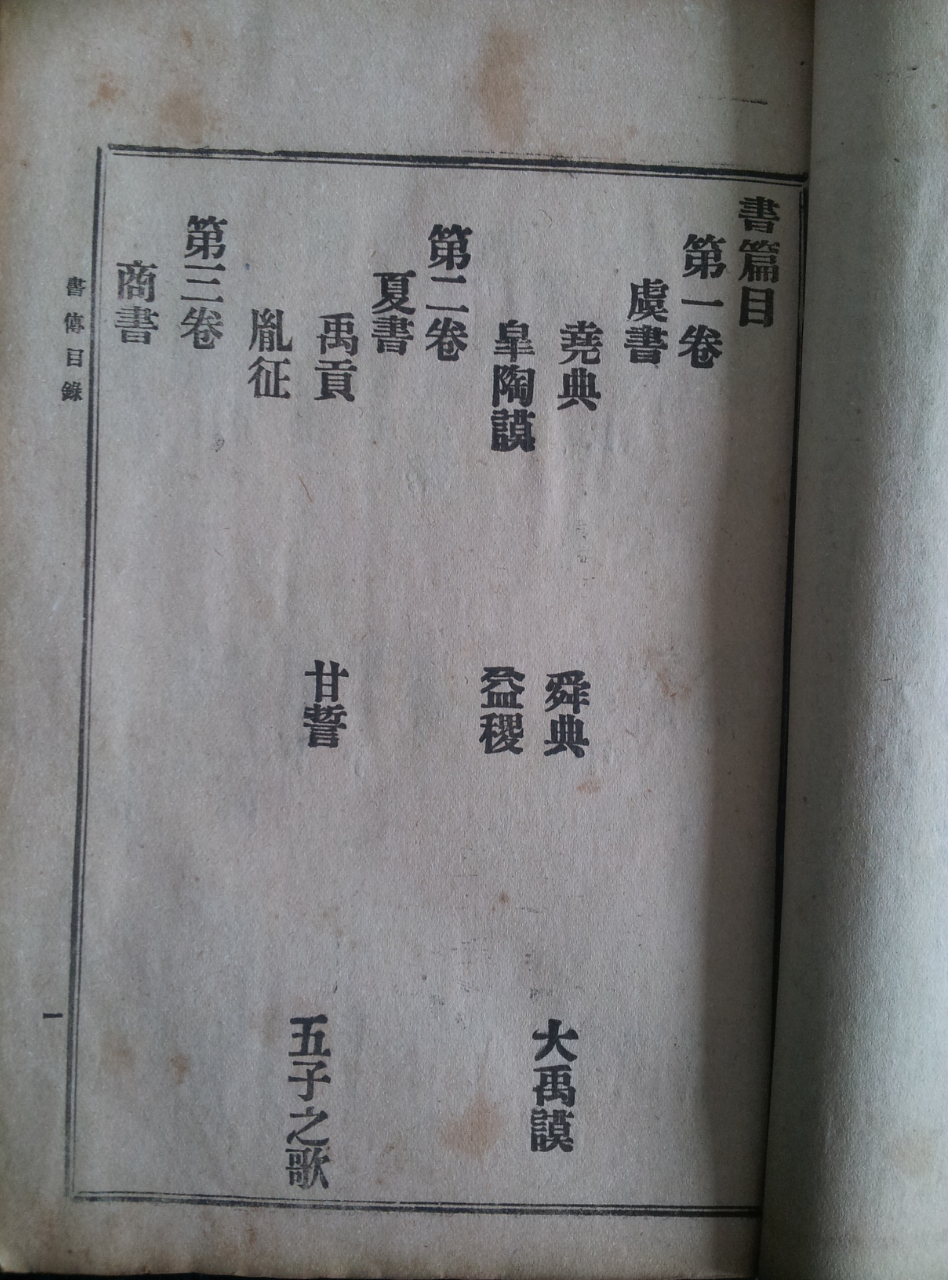 書篇目
第一卷
虞書
堯典 舜典 大禹謨
皐陶謨 益稷
第二卷
夏書
禹貢 甘誓 五子之歌
胤征
第三卷
商書
書傳目錄
一